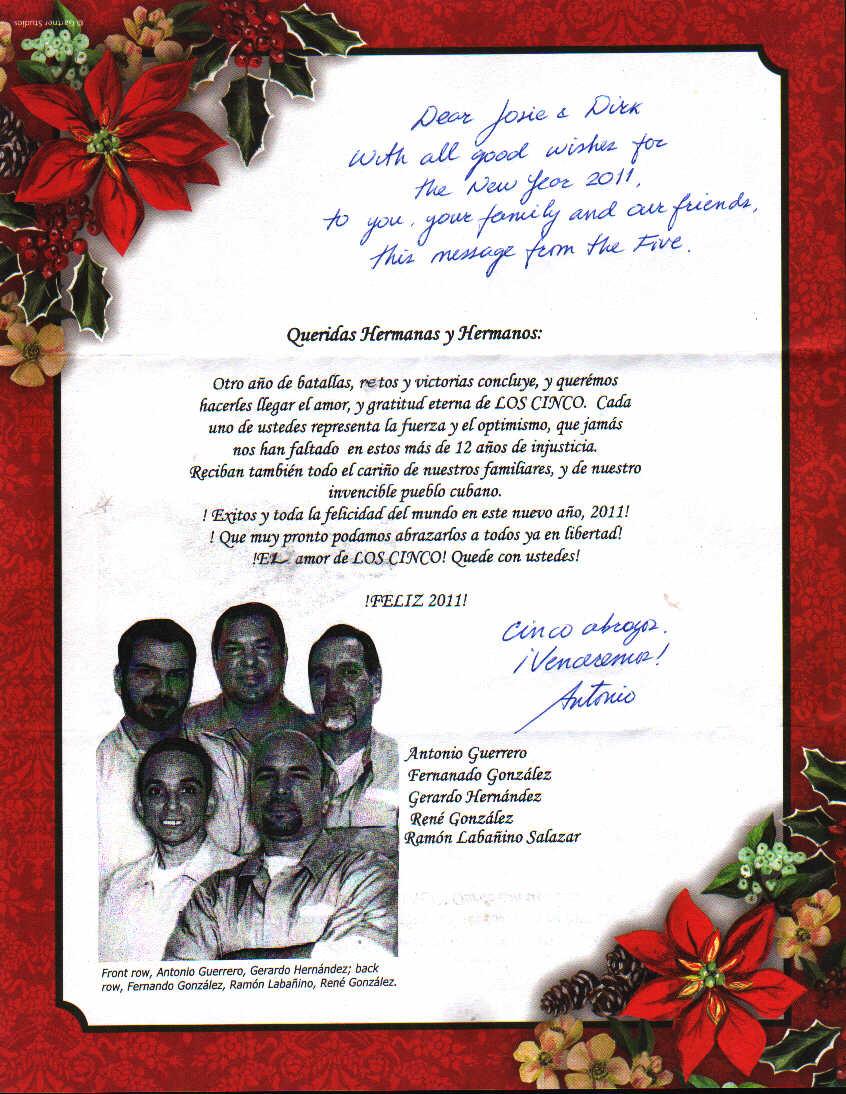 © Gartner Studios
Dear Josie & Dirk
With all good wishes for
the New Year 2011,
to you, your family and our friends,
this message from the Five.
Queridas Hermanas y Hermanos:
Otro año de batallas, retos y victorias concluye, y querémos
hacerles llegar el amor, y gratitud eterna de LOS CINCO. Cada
uno de ustedes representa la fuerza y el optimismo, que jamás
nos han faltado en estos más de 12 años de injusticia.
Reciban también todo el cariño de nuestros familiares, y de nuestro
invencible pueblo cubano.
! Exitos y toda la felicidad del mundo en este nuevo año, 2011!
! Que muy pronto podamos abrazarlos a todos ya en libertad!
!EL amor de LOS CINCO! Quede con ustedes!
!FELIZ 2011!
Cinco abrazos.
¡Venceremos!
Antonio
Antonio Guerrero
Fernanado González
Gerardo Hernández
René González
Ramón Labañino Salazar
Front row, Antonio Guerrero, Gerardo Hernández; back
row, Fernando González, Ramón Labañino, René González.